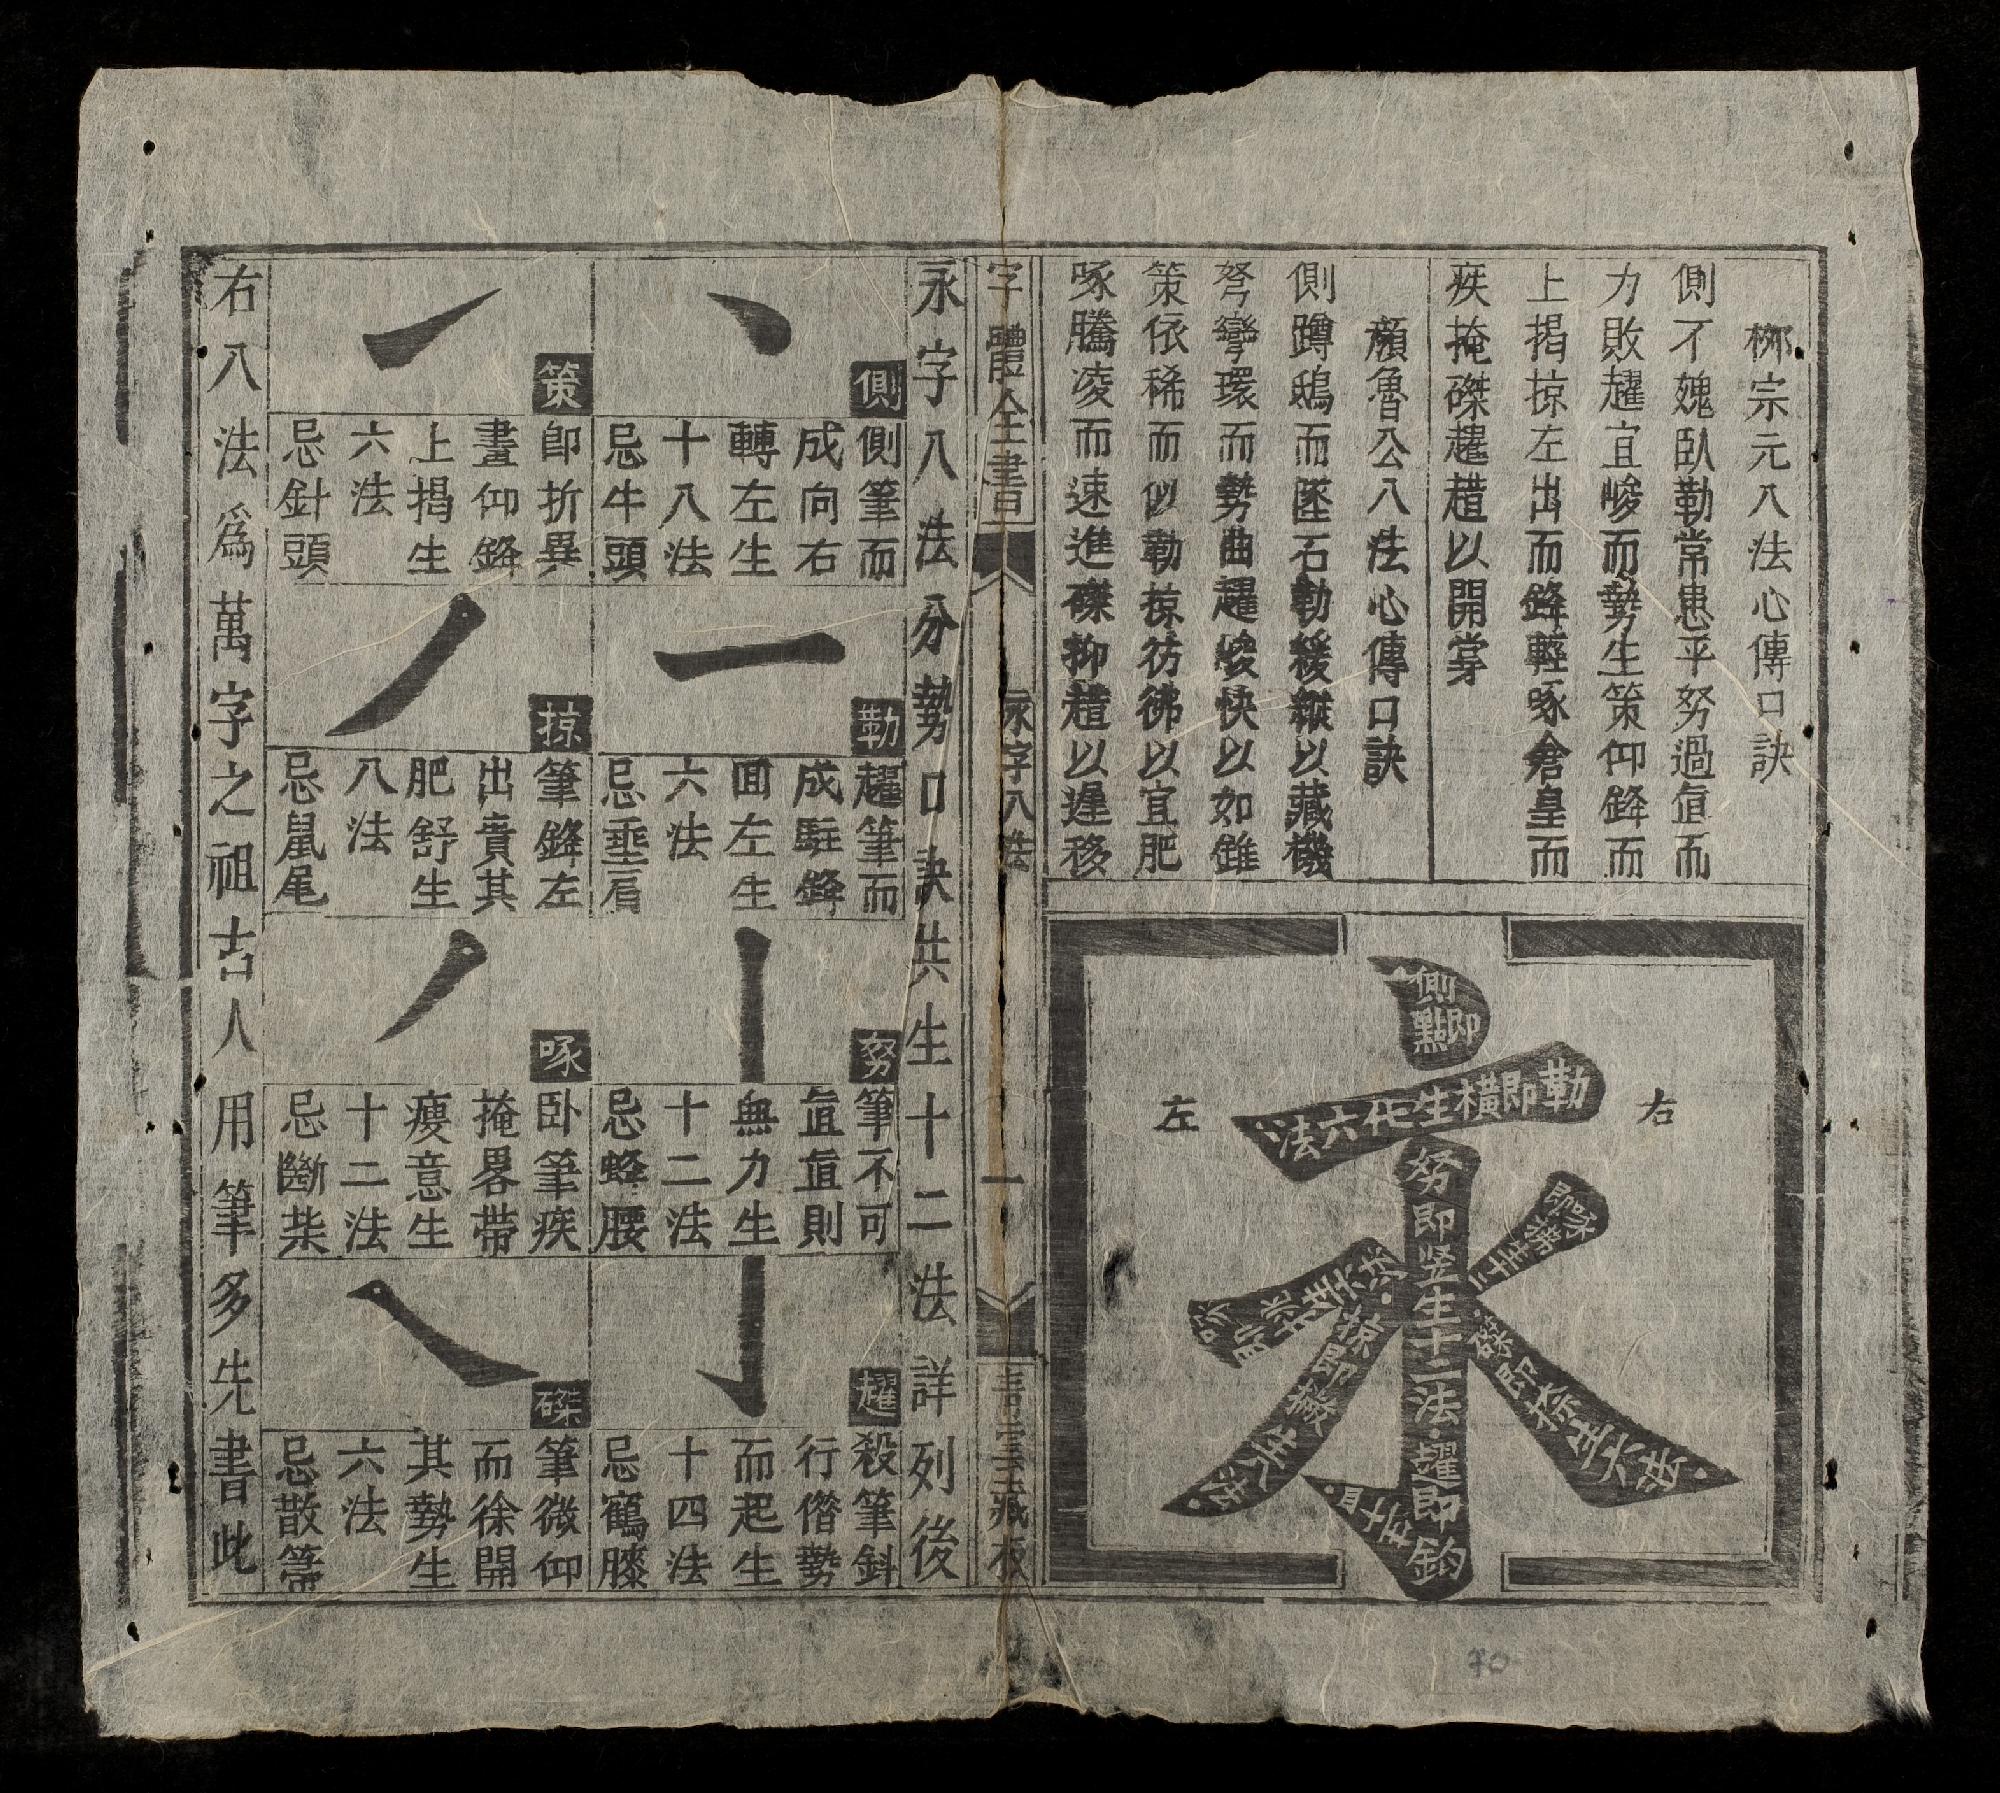 柳宗元八法心傳口訣
側不媿臥勒常患平努過直而
力敗趯宜峻而勢生策仰鋒而
上揭掠左出而鋒輕啄倉皇而
疾掩磔趯趞以開掌
顏魯公八法心傳口訣
側蹲鴟而墜石勒緩縱以藏機
弩彎環而勢曲趯峻快以如錐
策依稀而似勒掠彷彿以宜肥
啄騰凌而速進磔抑趞以遲移
右
左
側即點
勒即橫生化六法
努即竖生十二法
趯即鈎
磔即捺生六法
字體全書
永字八法
一
青雲堂藏板
永字八法分勢口訣共生十二法詳列後
側
側筆而
成向右
轉左生
十八法
忌牛頭
勒
趯筆而
成駐鋒
囬左生
六法
忌垂肩
努
筆不可
直直則
無力生
十二法
忌蜂腰
趯
殺筆斜
行僭勢
而起生
十四法
忌鶴膝
策
即折異
畫仰鋒
上揭生
六法
忌針頭
掠
筆鋒左
出貴其
肥舒生
八法
忌鼠尾
啄
卧筆疾
掩畧带
瘦意生
十二法
忌斷柴
磔
筆微仰
而徐開
其勢生
六法
忌散箒
右八法爲萬字之祖古人用筆多先書此
70